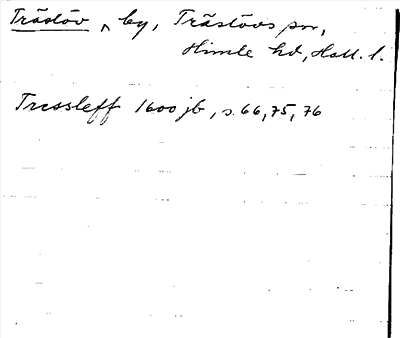 Träslöv ^ by, Träslövs sn,
Himle hd, Hall. l.
Tressleff 1600 jb, s. 66, 75, 76